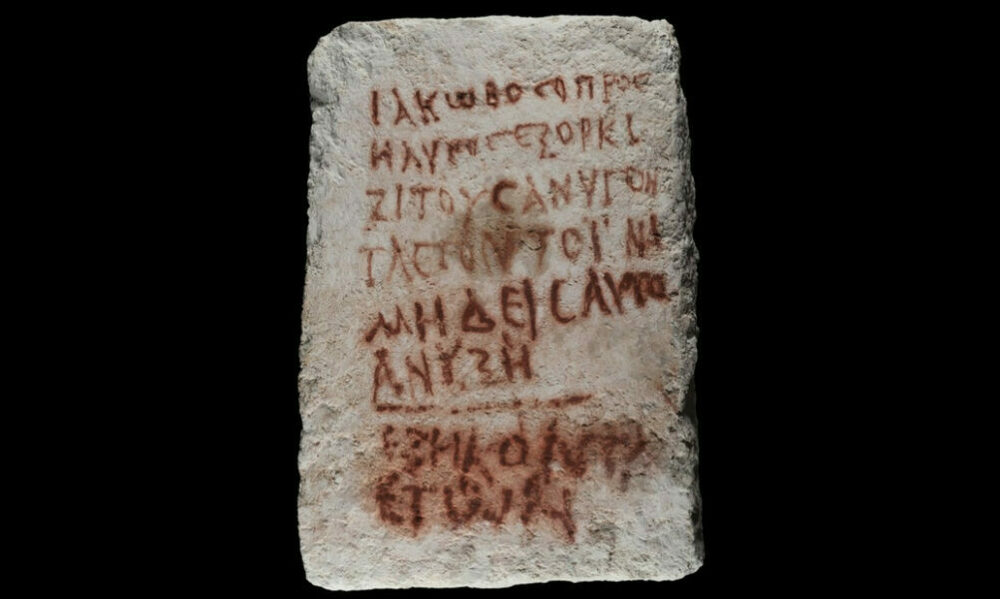 ΙΑΚΩΒΟCΟΠΡΟC
ΗΛΥΤΟCΕΞΟΡΚΙ
ΖΙΤΟΥCΑΝΥΓΟΝ
ΤΑCΤΟΝΤΟΪΝΑ
ΜΗΔΕΙCΑΥΤΟ
ΑΝΥΞΗ
ΕΞΗΚΟΝΤΑ
ΕΤΩΝ